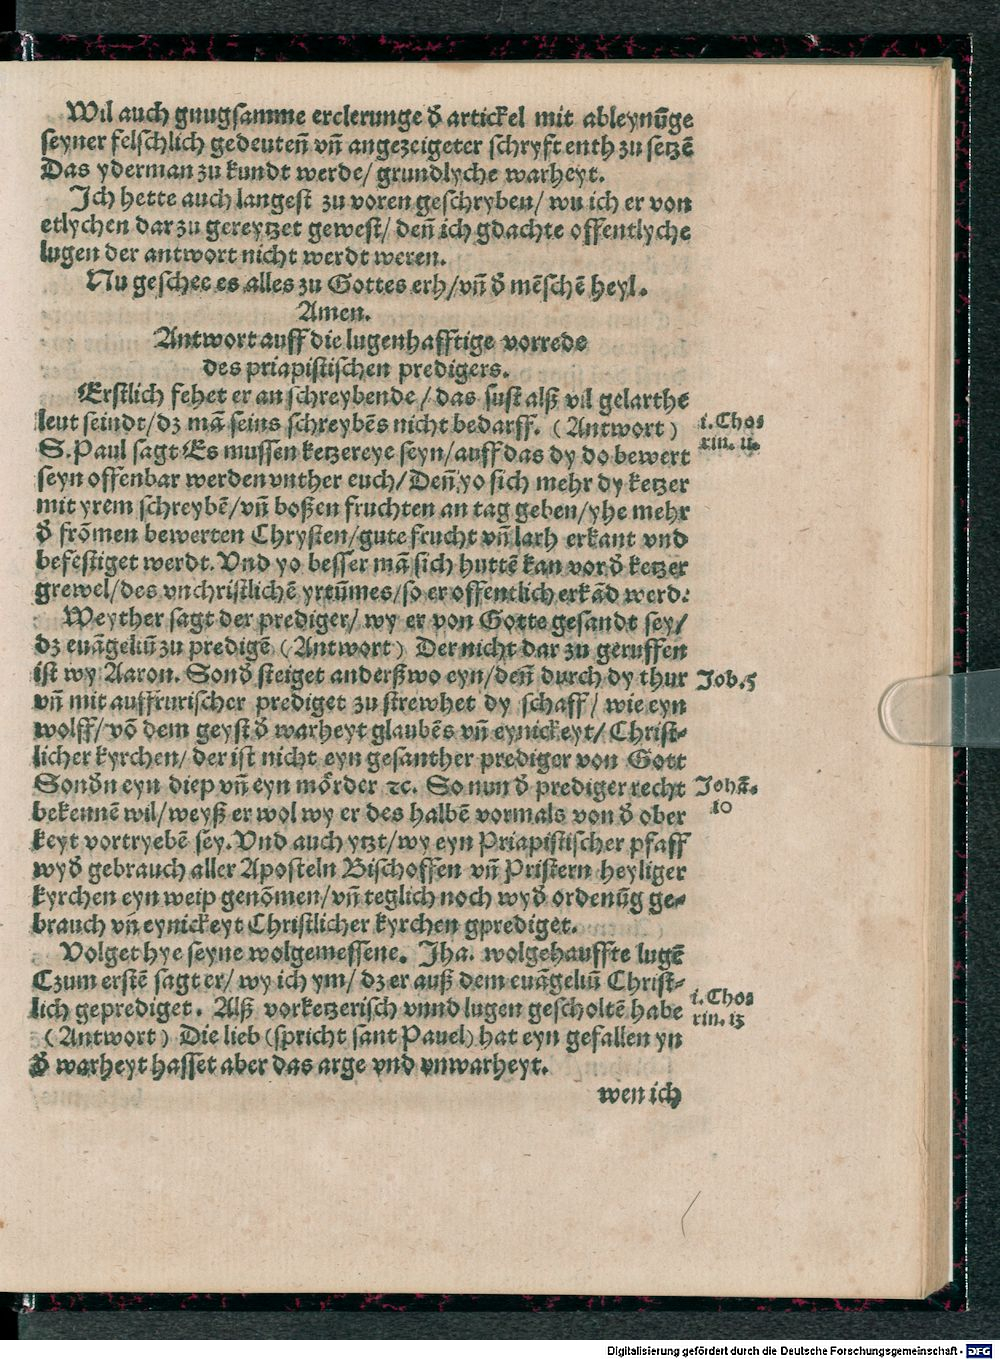 Wil auch gnugsamme erclerunge đ artickel mit ableynūge
seyner felschlich gedeuten̄ vn̄ angezeigeter schryft enth zu setzē
Das yderman zu kundt werde/ grundlyche warheyt.
Ich hette auch langest zu voren geschryben/ wu ich er von
etlychen dar zu gereytzet gewest/ den̄ ich gdachte offentlyche
lugen der antwort nicht werdt weren.
Nu geschee es alles zu Gottes erh/vn̄ đ mēschē heyl.
Amen.
Antwort auff die lugenhafftige vorrede
des priapistischen predigers.
Erstlich fehet er an schreybende/ das sust alß vil gelarthe
leut seindt/dz mā seins schreybēs nicht bedarff. (Antwort)
i. Chor
xiii. ii.
S. Paul sagt Es mussen ketzereye seyn/auff das dy do bewert
seyn offenbar werden vnther euch/Den̄ yo sich mehr dy ketzer
mit yrem schreybē/vn̄ boßen fruchten an tag geben/yhe mehr
đ frōmen bewerten Chrysten/gute frucht vn̄ larh erkant vnd
befestiget werdt. Vnd yo besser mā sich huttē kan vor đ ketzer
grewel/des vnchristlichē yrtūmes/so er offentlich erkād werd.
Weyther sagt der prediger/ wy er von Gotte gesandt sey/
dz euāgeliū zu predigē (Antwort) Der nicht dar zu geruffen
ist wy Aaron. Sonđ steiget anderßwo eyn/den̄ durch dy thur
Job. 5
vn̄ mit auffrurischer prediget zu strewhet dy schaff/ wie eyn
wolff/vō dem geyst đ warheyt glaubēs vn̄ eynickeyt/ Christ-
licher kyrchen/ der ist nicht eyn gesanther prediger von Gott
Sonđn eyn diep vn̄ eyn mörder ⁊c. So nun đ prediger recht
Johā.
10
bekennē wil/weyß er wol wy er des halbē vormals von đ ober
keyt vortryebē sey. Vnd auch ytzt/wy eyn Priapistischer pfaff
wyđ gebrauch aller Aposteln Bischoffen vn̄ Pristern heyliger
kyrchen eyn weip genōmen/vn̄ teglich noch wyđ ordenūg ge-
brauch vn̄ eynickeyt Christlicher kyrchen gprediget.
Volget hye seyne wolgemessene. Jha. wolgehauffte lugē
Czum erstē sagt er/ wy ich ym/ dz er auß dem euāgeliū Christ-
lich geprediget. Alß vorketzerisch vnnd lugen gescholtē habe
i. Chor
xiii. 13
(Antwort) Die lieb (spricht sant Pauel) hat eyn gefallen yn
đ warheyt hasset aber das arge vnd vnwarheyt.
wen ich
Digitalisierung gefördert durch die Deutsche Forschungsgemeinschaft - DFG